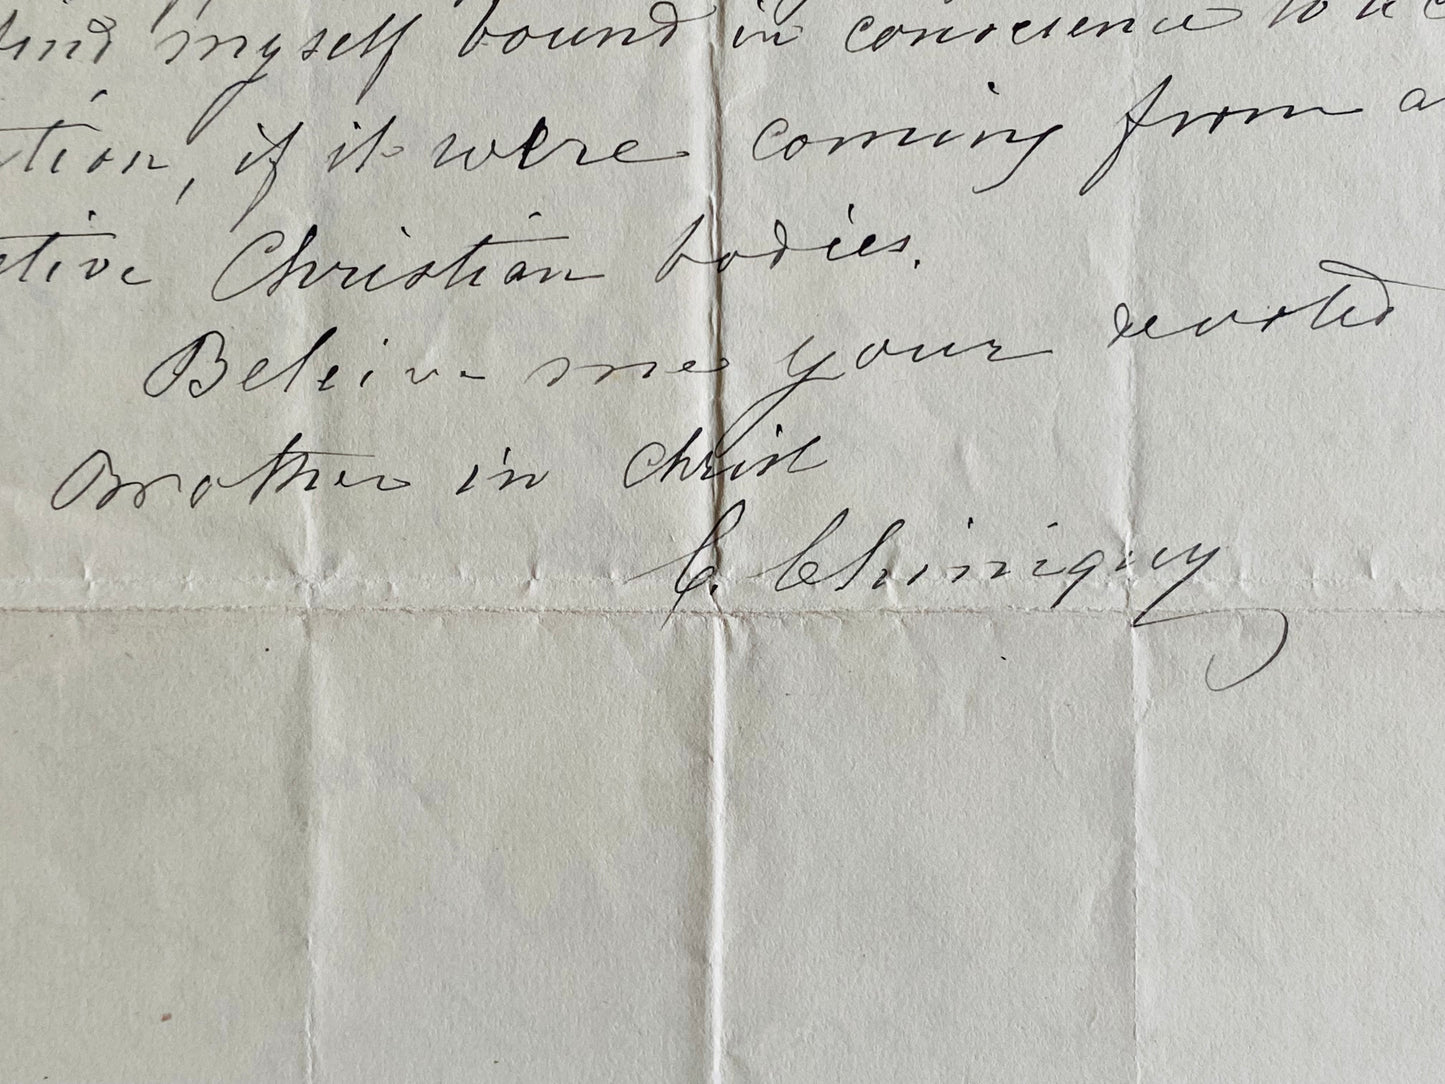 find myself bound in conscience to
tion, if it were coming from
tive Christian bodies.
Beleive me your devoted
Brother in Christ
C. Chiniquy